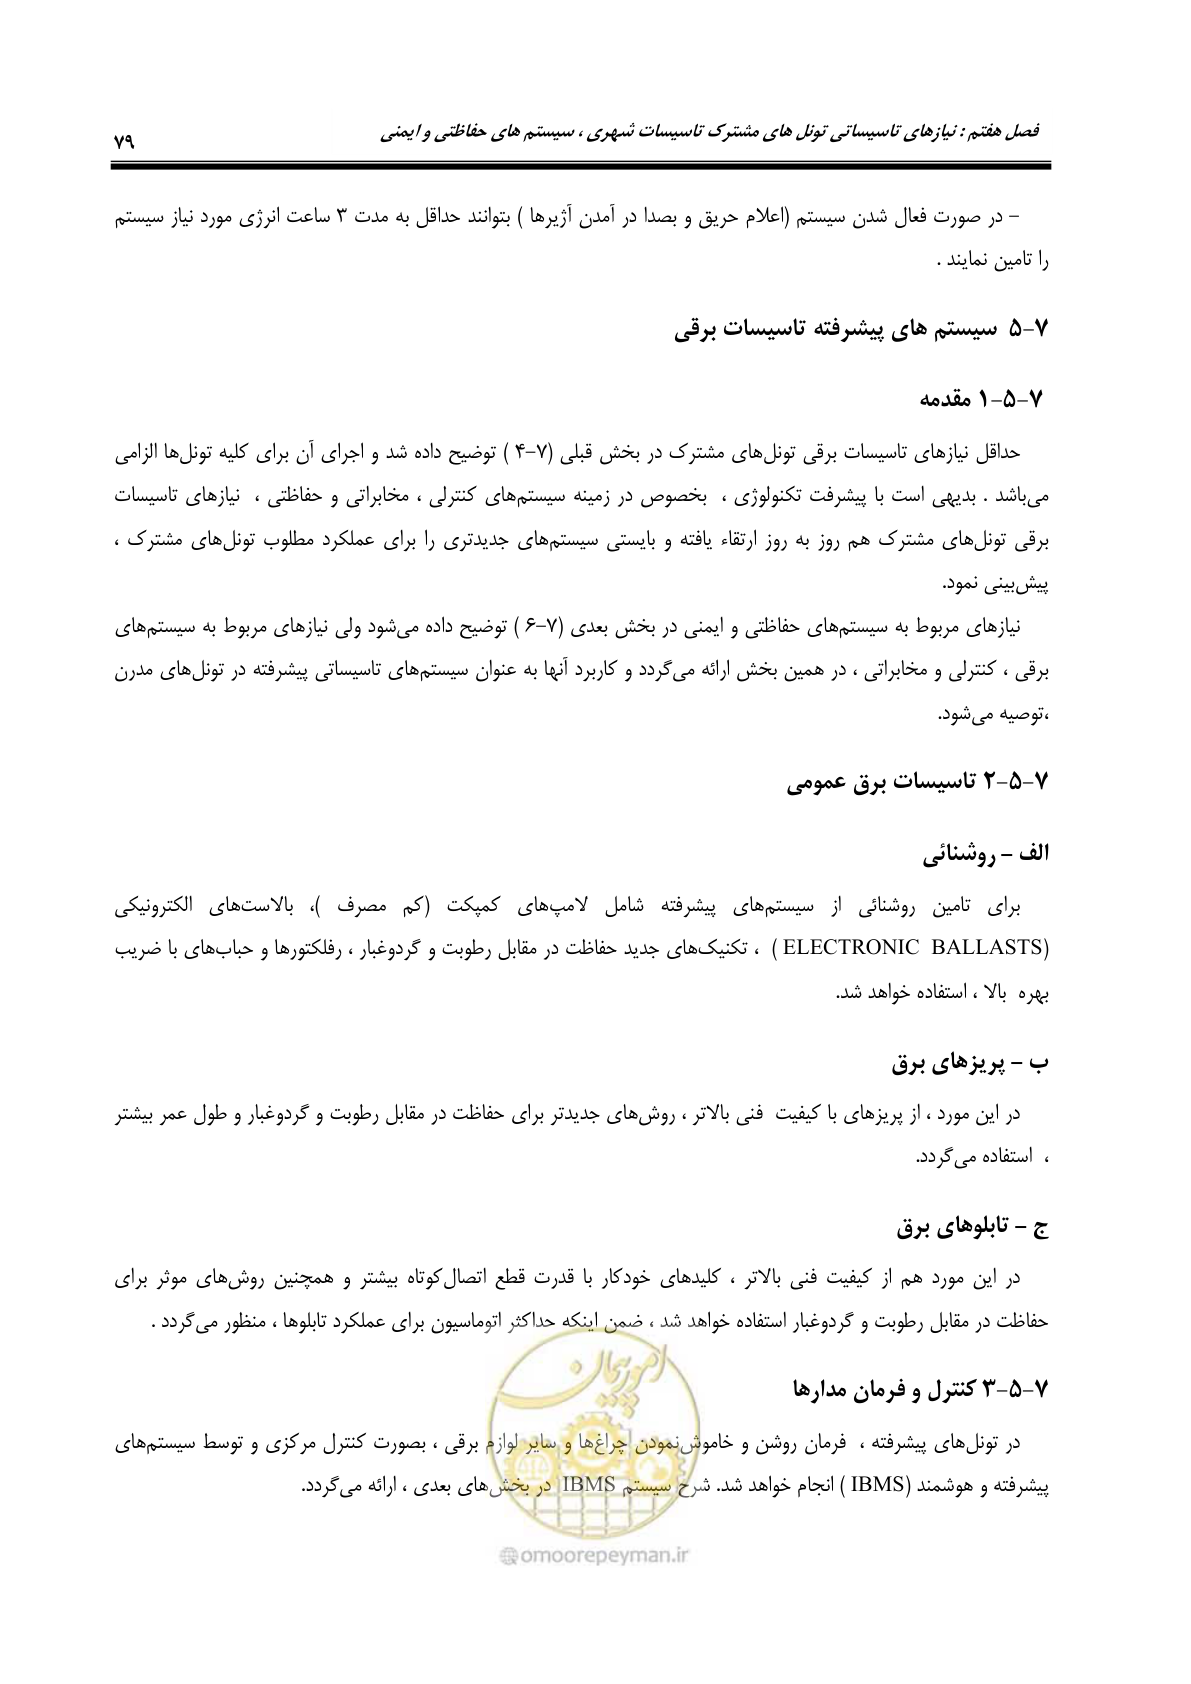 فصل هفتم : نیازهای تاسیساتی تونل های مشترک تاسیسات شهری ، سیستم های حفاظتی و ایمنی
۷۹
– در صورت فعال شدن سیستم (اعلام حریق و بصدا در آمدن آژیرها ) بتوانند حداقل به مدت ۳ ساعت انرژی مورد نیاز سیستم
را تامین نمایند .
۷–۵ سیستم های پیشرفته تاسیسات برقی
۷–۵–۱ مقدمه
حداقل نیازهای تاسیسات برقی تونل‌های مشترک در بخش قبلی (۷–۴ ) توضیح داده شد و اجرای آن برای کلیه تونل‌ها الزامی
می‌باشد . بدیهی است با پیشرفت تکنولوژی ، بخصوص در زمینه سیستم‌های کنترلی ، مخابراتی و حفاظتی ، نیازهای تاسیسات
برقی تونل‌های مشترک هم روز به روز ارتقاء یافته و بایستی سیستم‌های جدیدتری را برای عملکرد مطلوب تونل‌های مشترک ،
پیش‌بینی نمود.
نیازهای مربوط به سیستم‌های حفاظتی و ایمنی در بخش بعدی (۷–۶ ) توضیح داده می‌شود ولی نیازهای مربوط به سیستم‌های
برقی ، کنترلی و مخابراتی ، در همین بخش ارائه می‌گردد و کاربرد آنها به عنوان سیستم‌های تاسیساتی پیشرفته در تونل‌های مدرن
،توصیه می‌شود.
۷–۵–۲ تاسیسات برق عمومی
الف – روشنائی
برای تامین روشنائی از سیستم‌های پیشرفته شامل لامپ‌های کمپکت (کم مصرف )، بالاست‌های الکترونیکی
(ELECTRONIC BALLASTS ) ، تکنیک‌های جدید حفاظت در مقابل رطوبت و گردوغبار ، رفلکتورها و حباب‌های با ضریب
بهره بالا ، استفاده خواهد شد.
ب – پریزهای برق
در این مورد ، از پریزهای با کیفیت فنی بالاتر ، روش‌های جدیدتر برای حفاظت در مقابل رطوبت و گردوغبار و طول عمر بیشتر
، استفاده می‌گردد.
ج – تابلوهای برق
در این مورد هم از کیفیت فنی بالاتر ، کلیدهای خودکار با قدرت قطع اتصال‌کوتاه بیشتر و همچنین روش‌های موثر برای
حفاظت در مقابل رطوبت و گردوغبار استفاده خواهد شد ، ضمن اینکه حداکثر اتوماسیون برای عملکرد تابلوها ، منظور می‌گردد .
امور پیمان
۷–۵–۳ کنترل و فرمان مدارها
در تونل‌های پیشرفته ، فرمان روشن و خاموش‌نمودن چراغ‌ها و سایر لوازم برقی ، بصورت کنترل مرکزی و توسط سیستم‌های
پیشرفته و هوشمند (IBMS ) انجام خواهد شد. شرح سیستم IBMS در بخش‌های بعدی ، ارائه می‌گردد.
@omoorepeyman.ir